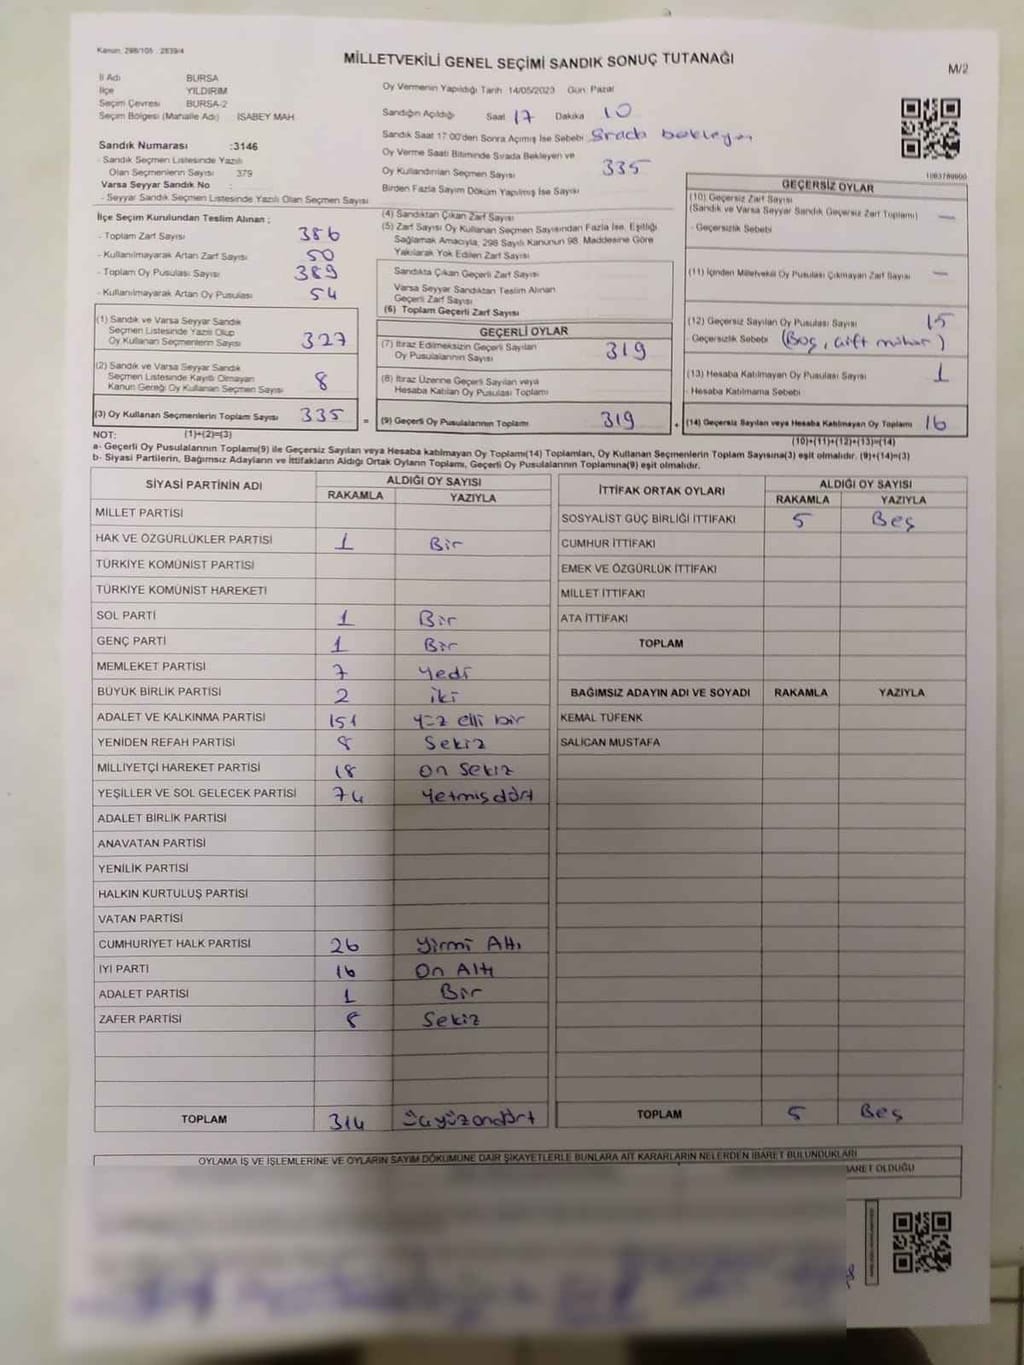 Kanun: 298/105 : 2839/4
MİLLETVEKİLİ GENEL SEÇİMİ SANDIK SONUÇ TUTANAĞI
M/2
İl Adı BURSA
İlçe YILDIRIM
Seçim Çevresi BURSA-2
Seçim Bölgesi (Mahalle Adı) ISABEY MAH
Sandık Numarası :3146
- Sandık Seçmen Listesinde Yazılı
Olan Seçmenlerin Sayısı 379
Varsa Seyyar Sandık No :
- Seyyar Sandık Seçmen Listesinde Yazılı Olan Seçmen Sayısı
Oy Vermenin Yapıldığı Tarih 14/05/2023 Gün: Pazar
Sandığın Açıldığı Saat 17 Dakika 10
Sandık Saat 17:00'den Sonra Açılmış İse Sebebi Sırada bekleyen
Oy Verme Saati Bitiminde Sırada Bekleyen ve
Oy Kullandırılan Seçmen Sayısı 335
Birden Fazla Sayım Döküm Yapılmış İse Sayısı
1083789600
İlçe Seçim Kurulundan Teslim Alınan ;
- Toplam Zarf Sayısı 386
- Kullanılmayarak Artan Zarf Sayısı 50
- Toplam Oy Pusulası Sayısı 389
- Kullanılmayarak Artan Oy Pusulası 54
(1) Sandık ve Varsa Seyyar Sandık
Seçmen Listesinde Yazılı Olup
Oy Kullanan Seçmenlerin Sayısı 327
(2) Sandık ve Varsa Seyyar Sandık
Seçmen Listesinde Kayıtlı Olmayan
Kanun Gereği Oy Kullanan Seçmen Sayısı 8
(3) Oy Kullanan Seçmenlerin Toplam Sayısı 335 =
(1)+(2)=(3)
(4) Sandıktan Çıkan Zarf Sayısı
(5) Zarf Sayısı Oy Kullanan Seçmen Sayısından Fazla İse, Eşitliği
Sağlamak Amacıyla, 298 Sayılı Kanunun 98. Maddesine Göre
Yakılarak Yok Edilen Zarf Sayısı
Sandıkta Çıkan Geçerli Zarf Sayısı
Varsa Seyyar Sandıktan Teslim Alınan
Geçerli Zarf Sayısı
(6) Toplam Geçerli Zarf Sayısı
GEÇERLİ OYLAR
(7) İtiraz Edilmeksizin Geçerli Sayılan
Oy Pusulalarının Sayısı 319
(8) İtiraz Üzerine Geçerli Sayılan veya
Hesaba Katılan Oy Pusulası Toplamı
(9) Geçerli Oy Pusulalarının Toplamı 319 +
GEÇERSİZ OYLAR
(10) Geçersiz Zarf Sayısı
(Sandık ve Varsa Seyyar Sandık Geçersiz Zarf Toplamı) —
- Geçersizlik Sebebi
(11) İçinden Milletvekili Oy Pusulası Çıkmayan Zarf Sayısı —
(12) Geçersiz Sayılan Oy Pusulası Sayısı 15
- Geçersizlik Sebebi (Boş, çift mühür)
(13) Hesaba Katılmayan Oy Pusulası Sayısı 1
- Hesaba Katılmama Sebebi
(14) Geçersiz Sayılan veya Hesaba Katılmayan Oy Toplamı 16
(10)+(11)+(12)+(13)=(14)
NOT:
a- Geçerli Oy Pusulalarının Toplamı(9) ile Geçersiz Sayılan veya Hesaba katılmayan Oy Toplamı(14) Toplamları, Oy Kullanan Seçmenlerin Toplam Sayısına(3) eşit olmalıdır. (9)+(14)=(3)
b- Siyasi Partilerin, Bağımsız Adayların ve İttifakların Aldığı Ortak Oyların Toplamı, Geçerli Oy Pusulalarının Toplamına(9) eşit olmalıdır.
SİYASİ PARTİNİN ADI ALDIĞI OY SAYISI
RAKAMLA YAZIYLA
MİLLET PARTİSİ
HAK VE ÖZGÜRLÜKLER PARTİSİ 1 Bir
TÜRKİYE KOMÜNİST PARTİSİ
TÜRKİYE KOMÜNİST HAREKETİ
SOL PARTİ 1 Bir
GENÇ PARTİ 1 Bir
MEMLEKET PARTİSİ 7 Yedi
BÜYÜK BİRLİK PARTİSİ 2 iki
ADALET VE KALKINMA PARTİSİ 151 yüz elli bir
YENİDEN REFAH PARTİSİ 8 Sekiz
MİLLİYETÇİ HAREKET PARTİSİ 18 on sekiz
YEŞİLLER VE SOL GELECEK PARTİSİ 74 Yetmişdört
ADALET BİRLİK PARTİSİ
ANAVATAN PARTİSİ
YENİLİK PARTİSİ
HALKIN KURTULUŞ PARTİSİ
VATAN PARTİSİ
CUMHURİYET HALK PARTİSİ 26 Yirmi Altı
İYİ PARTİ 16 On Altı
ADALET PARTİSİ 1 Bir
ZAFER PARTİSİ 8 Sekiz
TOPLAM 314 üçyüzondört
İTTİFAK ORTAK OYLARI ALDIĞI OY SAYISI
RAKAMLA YAZIYLA
SOSYALİST GÜÇ BİRLİĞİ İTTİFAKI 5 Beş
CUMHUR İTTİFAKI
EMEK VE ÖZGÜRLÜK İTTİFAKI
MİLLET İTTİFAKI
ATA İTTİFAKI
TOPLAM
BAĞIMSIZ ADAYIN ADI VE SOYADI RAKAMLA YAZIYLA
KEMAL TÜFENK
SALİCAN MUSTAFA
TOPLAM 5 Beş
OYLAMA İŞ VE İŞLEMLERİNE VE OYLARIN SAYIM DÖKÜMÜNE DAİR ŞİKAYETLERLE BUNLARA AİT KARARLARIN NELERDEN İBARET BULUNDUKLARI
BARET OLDUĞU